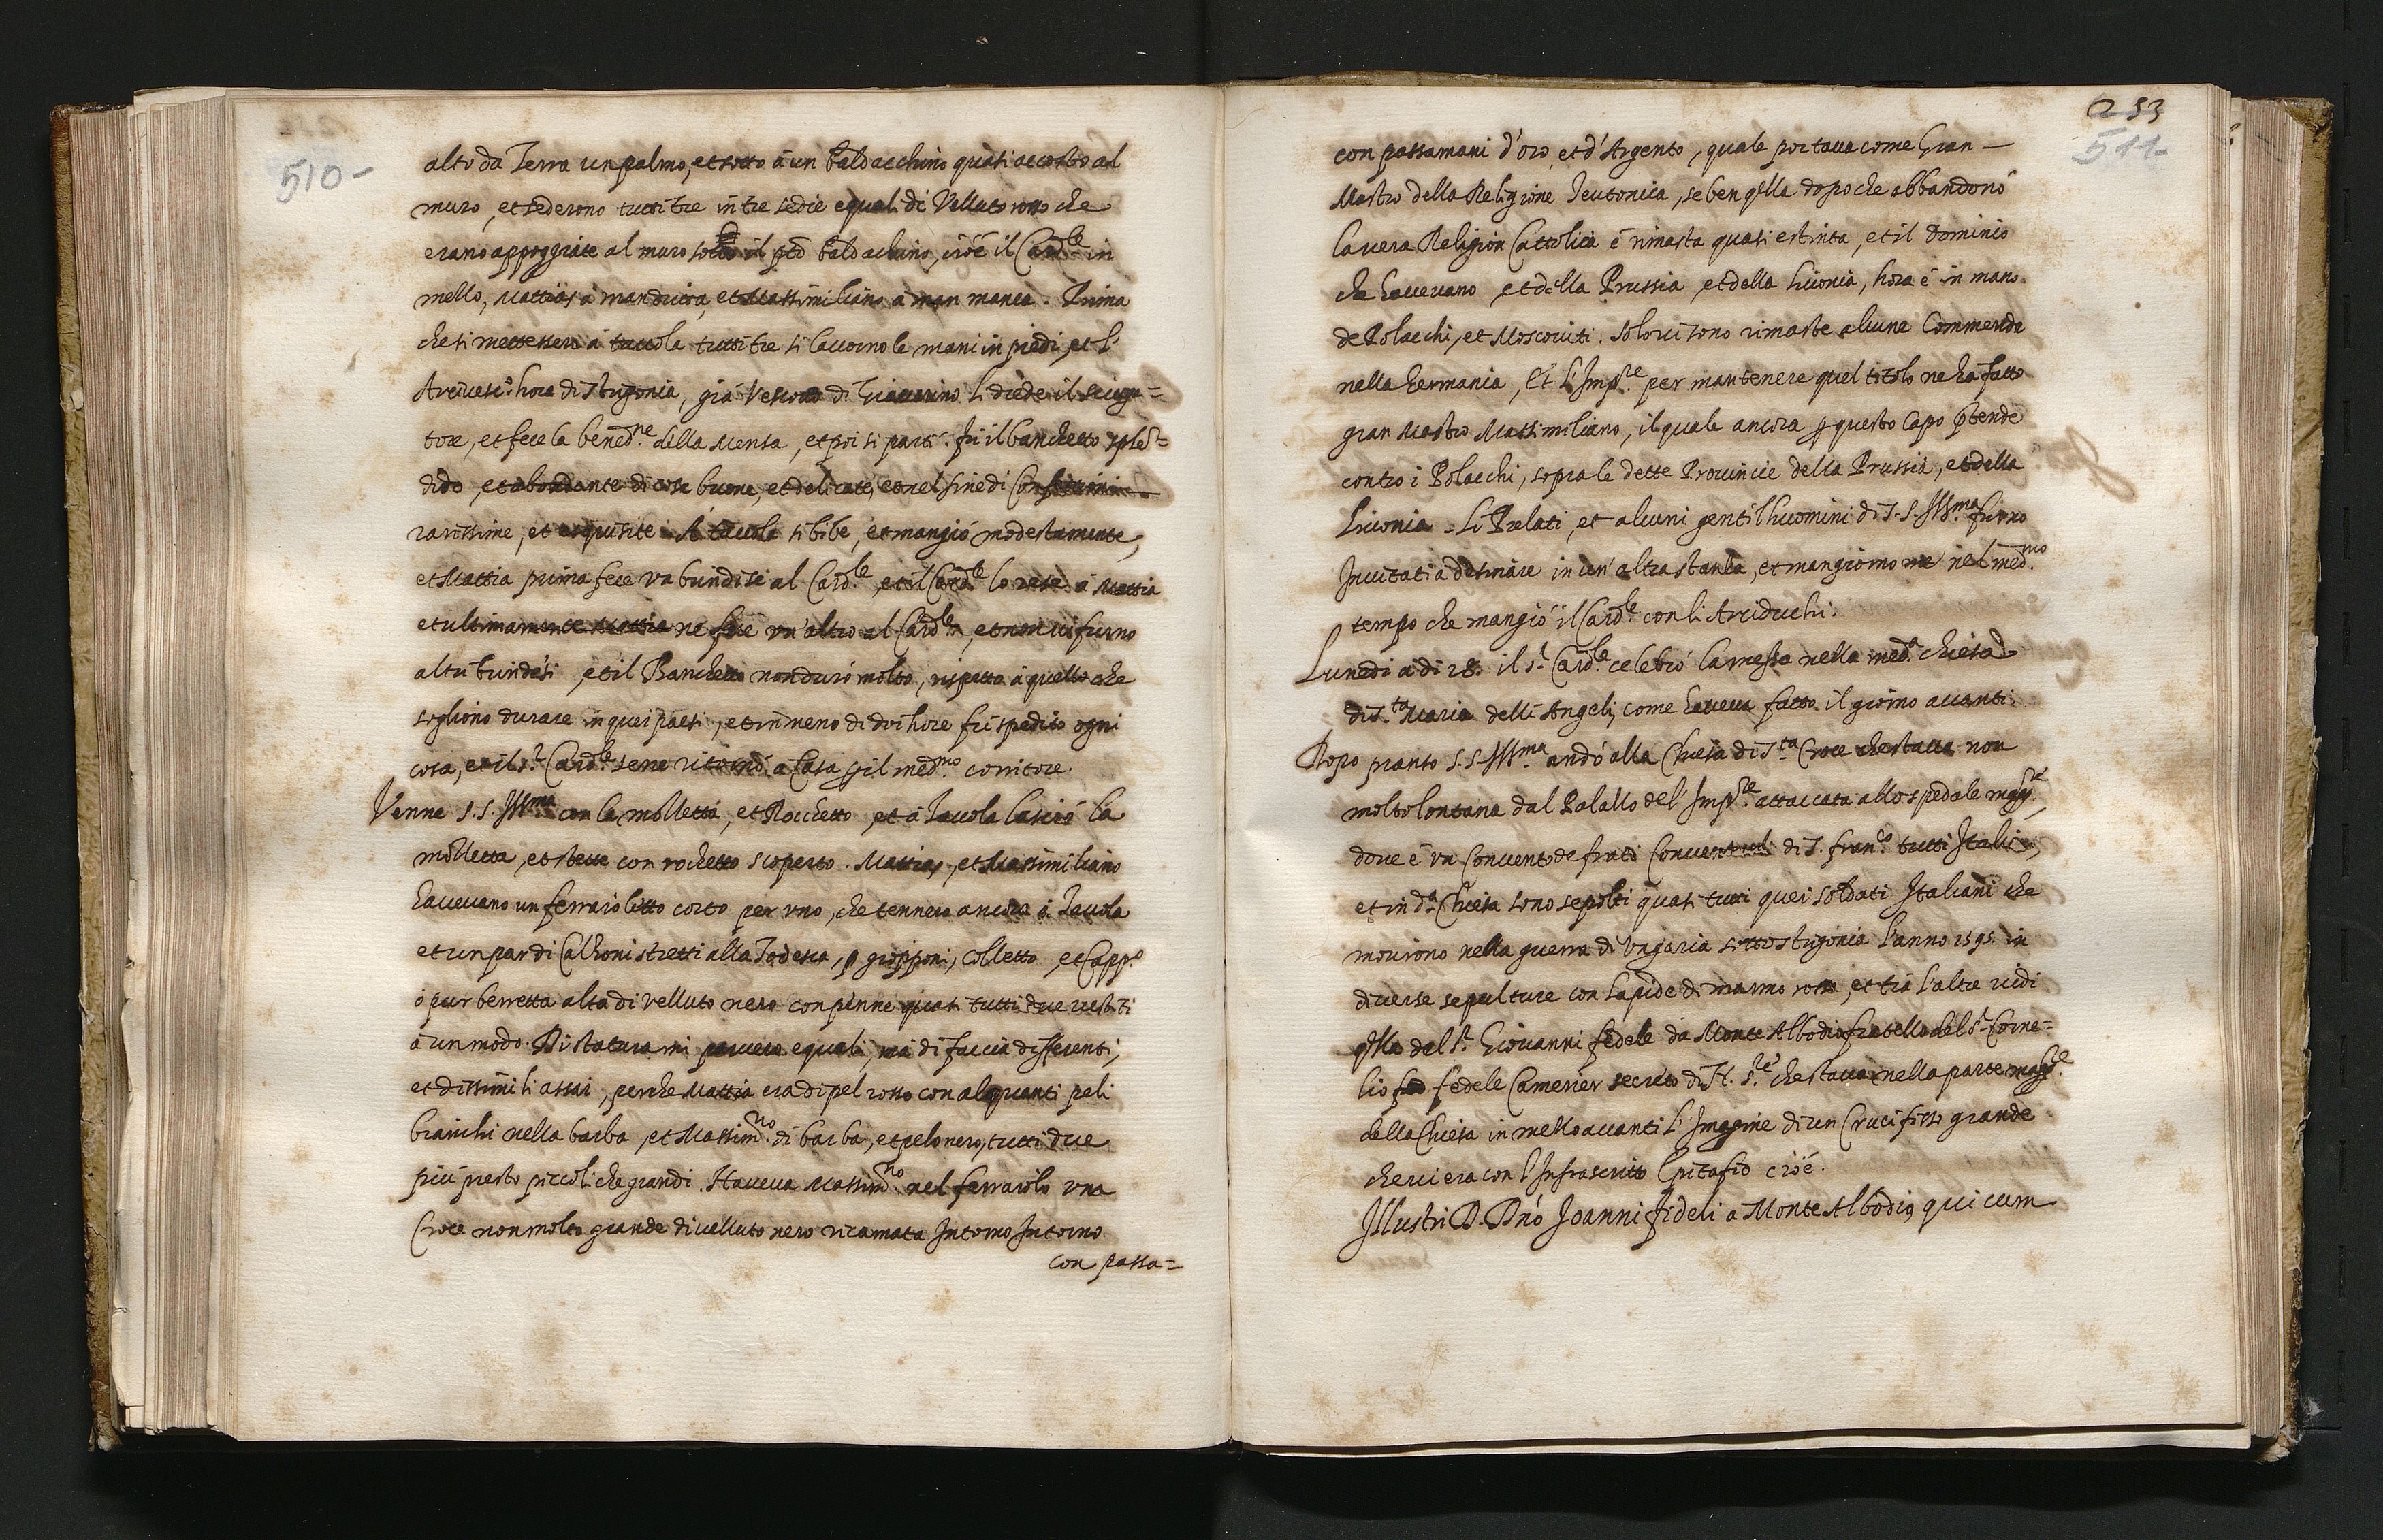 510-
alto da Terra un palmo, et sotto à un baldacchino quasi accosto al
muro, et sederono tutti tre in tre sedie equali di Velluto rosso che
erano appoggiate al muro sotto il pto baldachino, cioè il Cardle in
mezzo, Mattias à man dritta, et Massimiliano à man manca. Prima
che si mettessero à tavola tutti tre si lavorno le mani in piedi, et l'
Arcivesco hora di Strigonia, già Vescovo di Giavarino li diede il sciuga=
tore, et fece la benedne della Mensa, et poi si partì. Fù il banchetto splen=
dido, et abondante di cose buone, et delicate, et nel fine di
rarissime, et esquisite. A tavola si bibe, et mangiò modestamente,
et Mattia prima fece un brindisi al Cardle, et il Cardle lo rese à Mattia
et ultimamente Mattia ne fece un'altro al Cardle, et non vi furno
altri brindisi, et il Banchetto non durò molto, rispetto à quello che
sogliono durare in quei paesi, et in meno di doi hore fù spedito ogni
cosa, et il sr Cardle se ne ritornò à casa per il medmo corritore.
Venne S.S. Illma con la mozzetta, et Rocchetto, et à Tavola lasciò la
mozzetta, et stette con rochetto scoperto. Mattias, et Massimiliano
havevano un ferraioletto corto per uno, che tennero ancora à Tavola
et un par di Calzoni stretti alla Todesca, giopponi, Colletto, et Cappo
ò pur berretta alta di velluto nero con penne quasi tutti due vestiti
à un modo. Di statura mi parvero equali, mà di faccia differenti,
et dissimili assai, perche Mattia era di pel rosso con alquanti peli
bianchi nella barba, et Massimno di barba, et pelo nero, tutti due
più presto piccoli che grandi. Haveva Massimno nel ferraiolo una
Croce non molto grande di velluto nero ricamata Intorno Intorno
con passa=
253
511-
con passamani d'oro, et d'Argento, quale portava come Gran
Mastro della Religione Teutonica, se ben qlla dopo che abbandonò
la vera Religion Cattolica è rimasta quasi estinta, et il dominio
che havevano, et della Prussia, et della Livonia, hora è in mano
de Polacchi, et Moscoviti. Solo vi sono rimaste alcune Commende
nella Germania, et l'Impre per mantenere quel titolo ne ha fatto
gran Mastro Massimiliano, il quale ancora per questo Capo ptende
contro i Polacchi, sopra le dette Provincie della Prussia, et della
Livonia. Li Prelati, et alcuni gentilhuomini di S.S. Illma furno
Invitati à desinare in un'altra stanza, et mangiorno nel medmo
tempo che mangiò il Cardle con li Arciduchi.
Lunedi à di 28. il sr Cardle celebrò la messa nella meda chiesa
di Sta Maria delli Angeli, come haveva fatto il giorno avanti.
Dopo pranso S.S. Illma andò alla Chiesa di Sta Croce che stava non
molto lontana dal Palazzo del'Impre attaccata all'ospedale maggre,
dove è un Convento de frati Conventuali di S. Franco tutti Italiani,
et in da Chiesa sono sepolti quasi tutti quei soldati Italiani che
morirono nella guerra di Ungaria sotto Strigonia l'anno 1595. in
diverse sepulture con lapide di marmo rosso, et trà l'altre vidi
qlla del sr Giovanni fedele da Monte Albodio fratello del sr Corne=
lio fedele Camerier secreto di N. Sre che stava nella parte maggre
della Chiesa in mezzo avanti l'Imagine di un Crucifisso grande
che vi era con l'Infrascritto Epitafio cioè.
Illustri D. Dno Joanni Fideli a Monte Albodio, qui cum